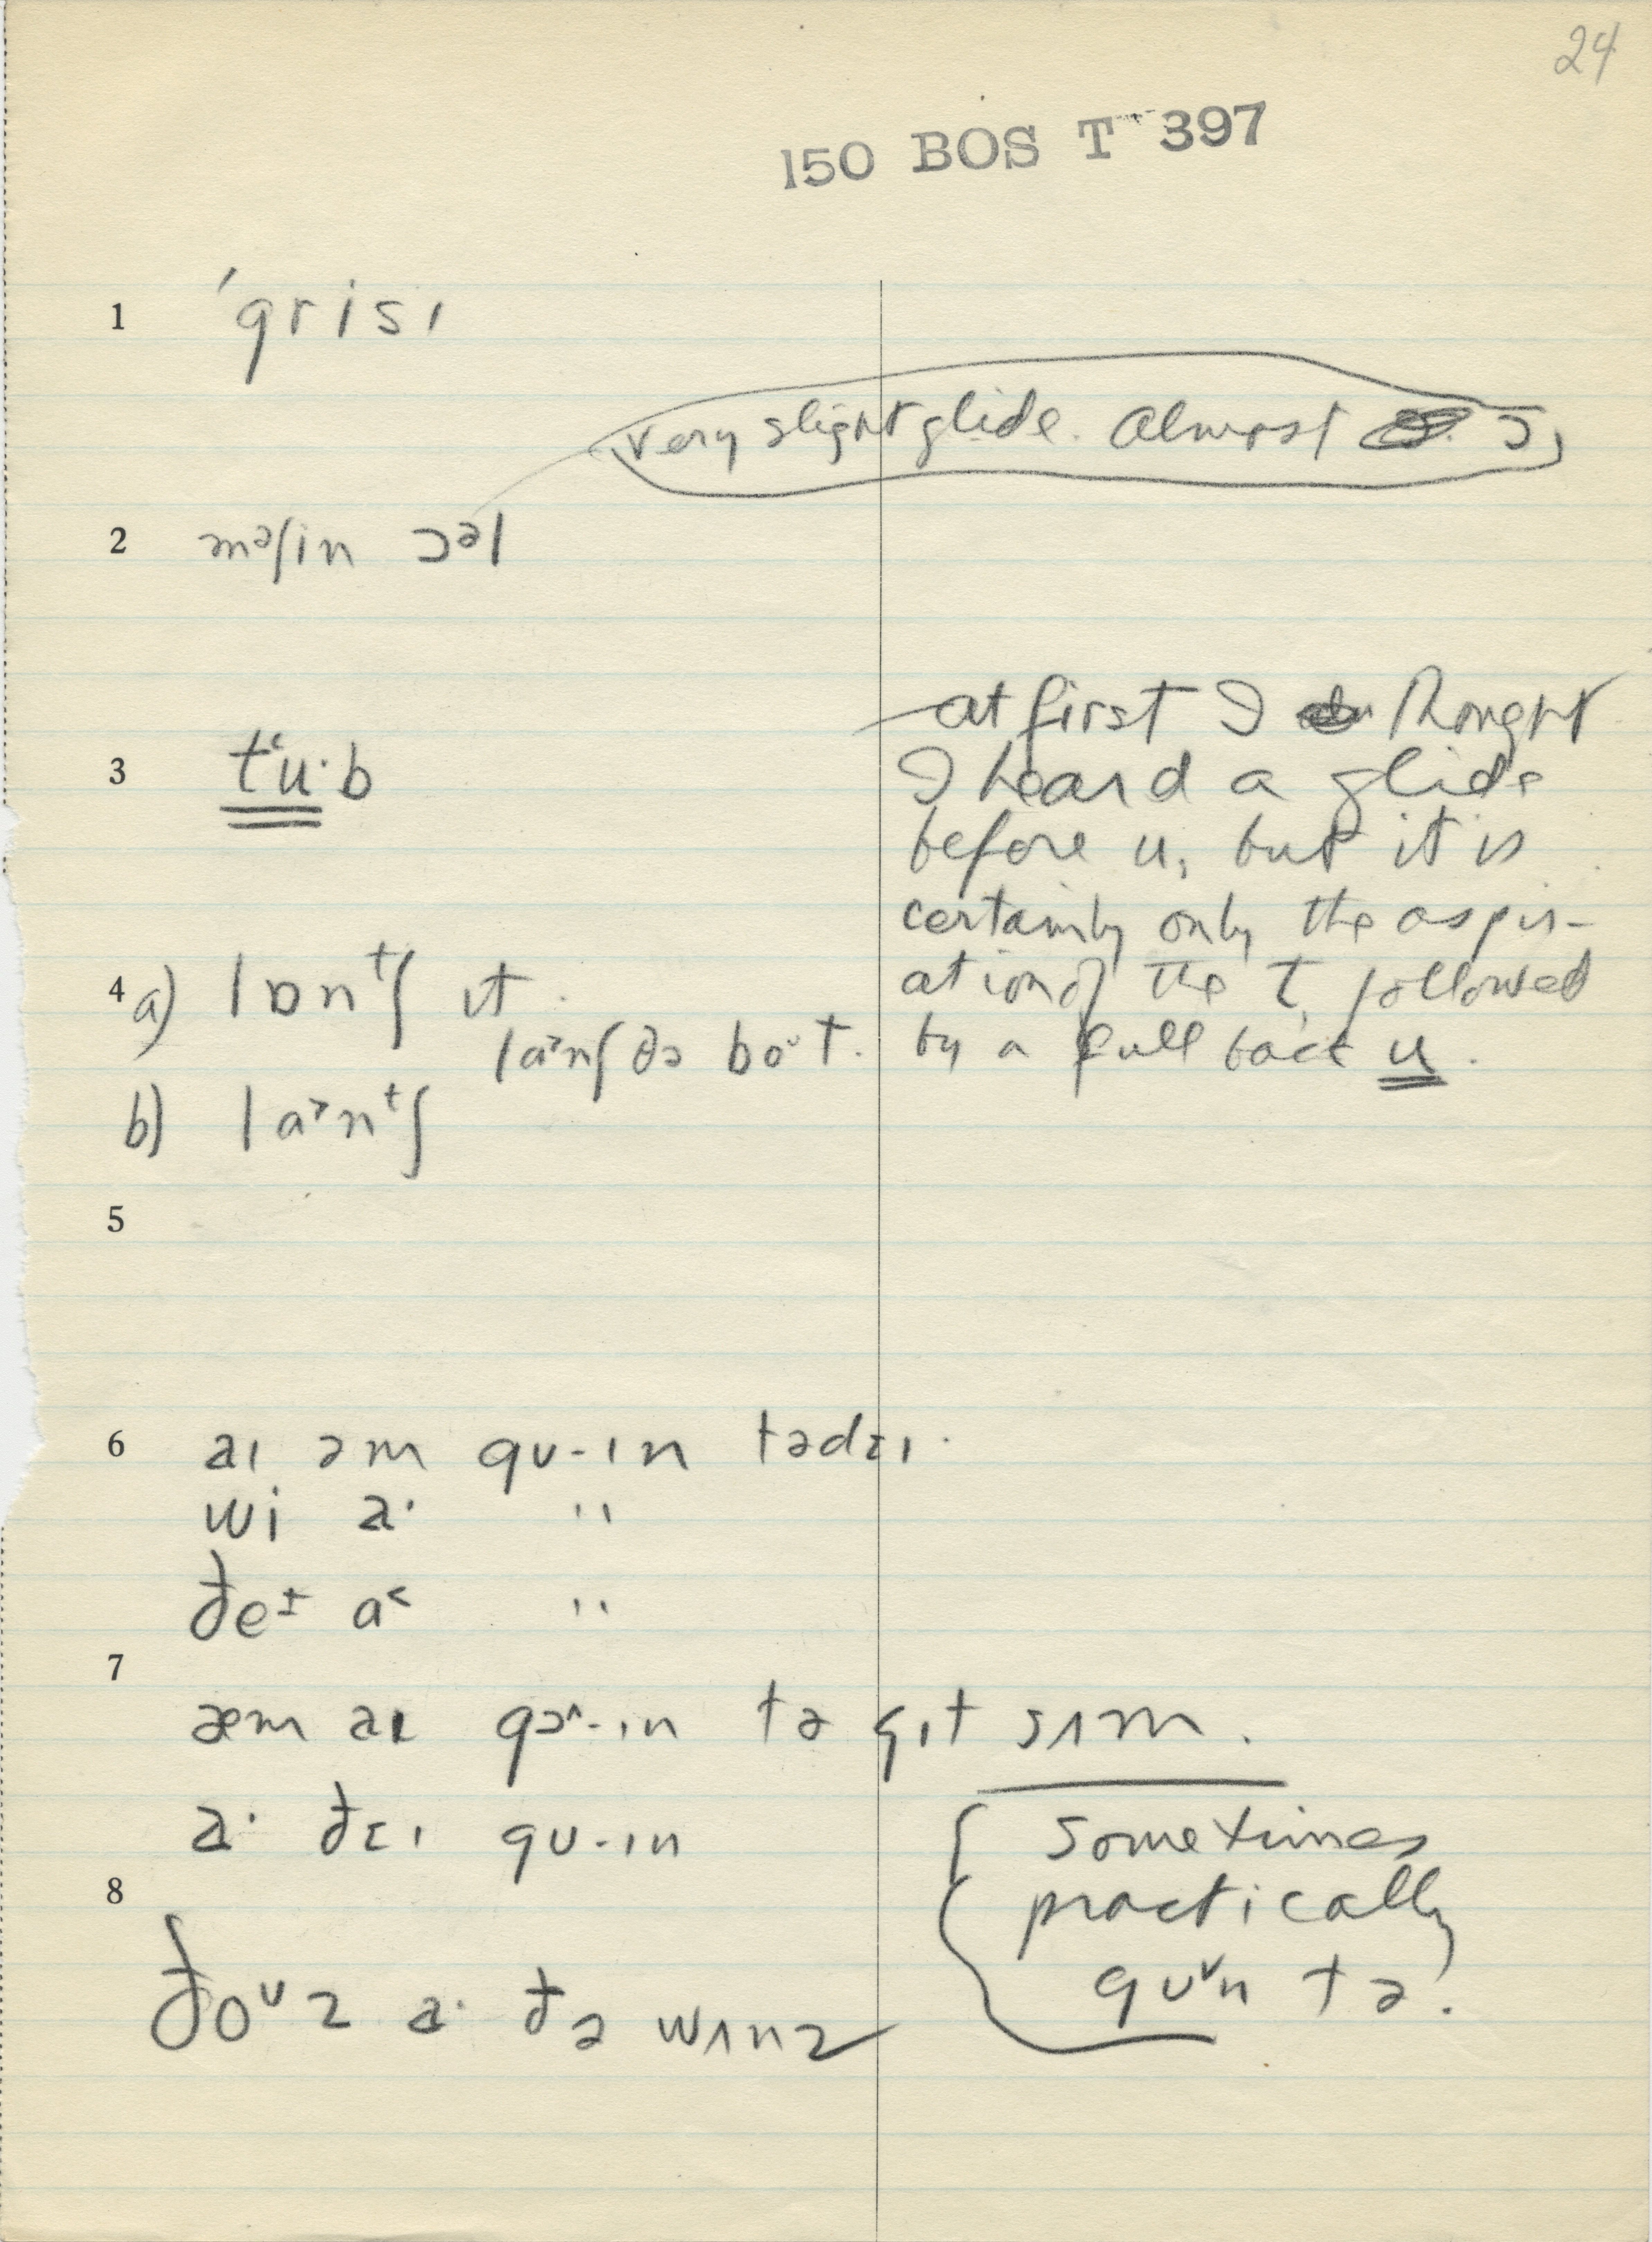 24
150 BOS T 397
1 ˈgrisɪ
very slight glide. Almost ɔ,
2 məʃin ɔᵊl
3 tʻu·b
at first I thought
I heard a glide
before u, but it is
certainly only the aspir-
ation of the t, followed
by a full back u.
4 a) lɒnᵗʃ ɪt.
la˃nʃ ðə boᶷt.
b) la˃nᵗʃ
5
6 aɪ əm gʊ-ɪn tədɛɪ.
wi a· "
ðeᶧ a˂ "
7
æm aɪ gɔ^-ɪn tə gɪt sʌm.
a· ðɛɪ gʊ-ɪn
8
ðoᶷz a· ðə wʌnz
sometimes
practically
gʊ˅n tə.